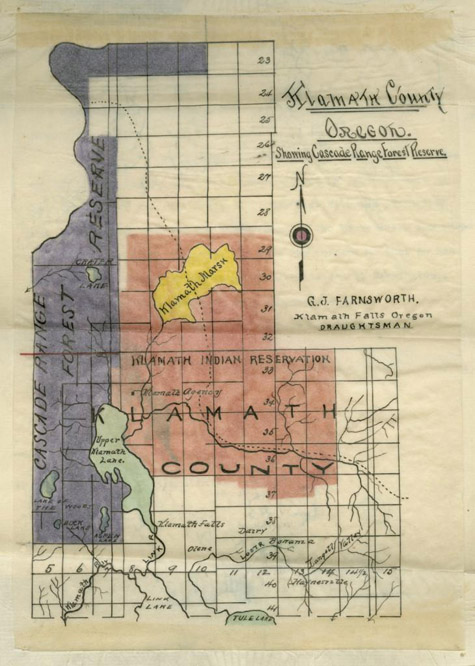 Klamath County
Oregon.
Showing Cascade Range Forest Reserve.
N
G.J. FARNSWORTH.
Klamath Falls Oregon
DRAUGHTSMAN.
23
24
25
26
27
28
29
30
31
32
33
34
35
36
37
38
39
40
41
CASCADE RANGE
FOREST RESERVE
CRATER LAKE
Klamath Marsh
KLAMATH INDIAN RESERVATION
Klamath Agency
KLAMATH
COUNTY
Upper
Klamath
Lake.
LAKE OF
THE WOODS
Klamath Falls
Dairy
Olene
Bonanza
Langell Valley
LINK R.
5 6 7 8 9 10 11 12 13 14 15
Klamath
LINK
LAKE
TULE LAKE